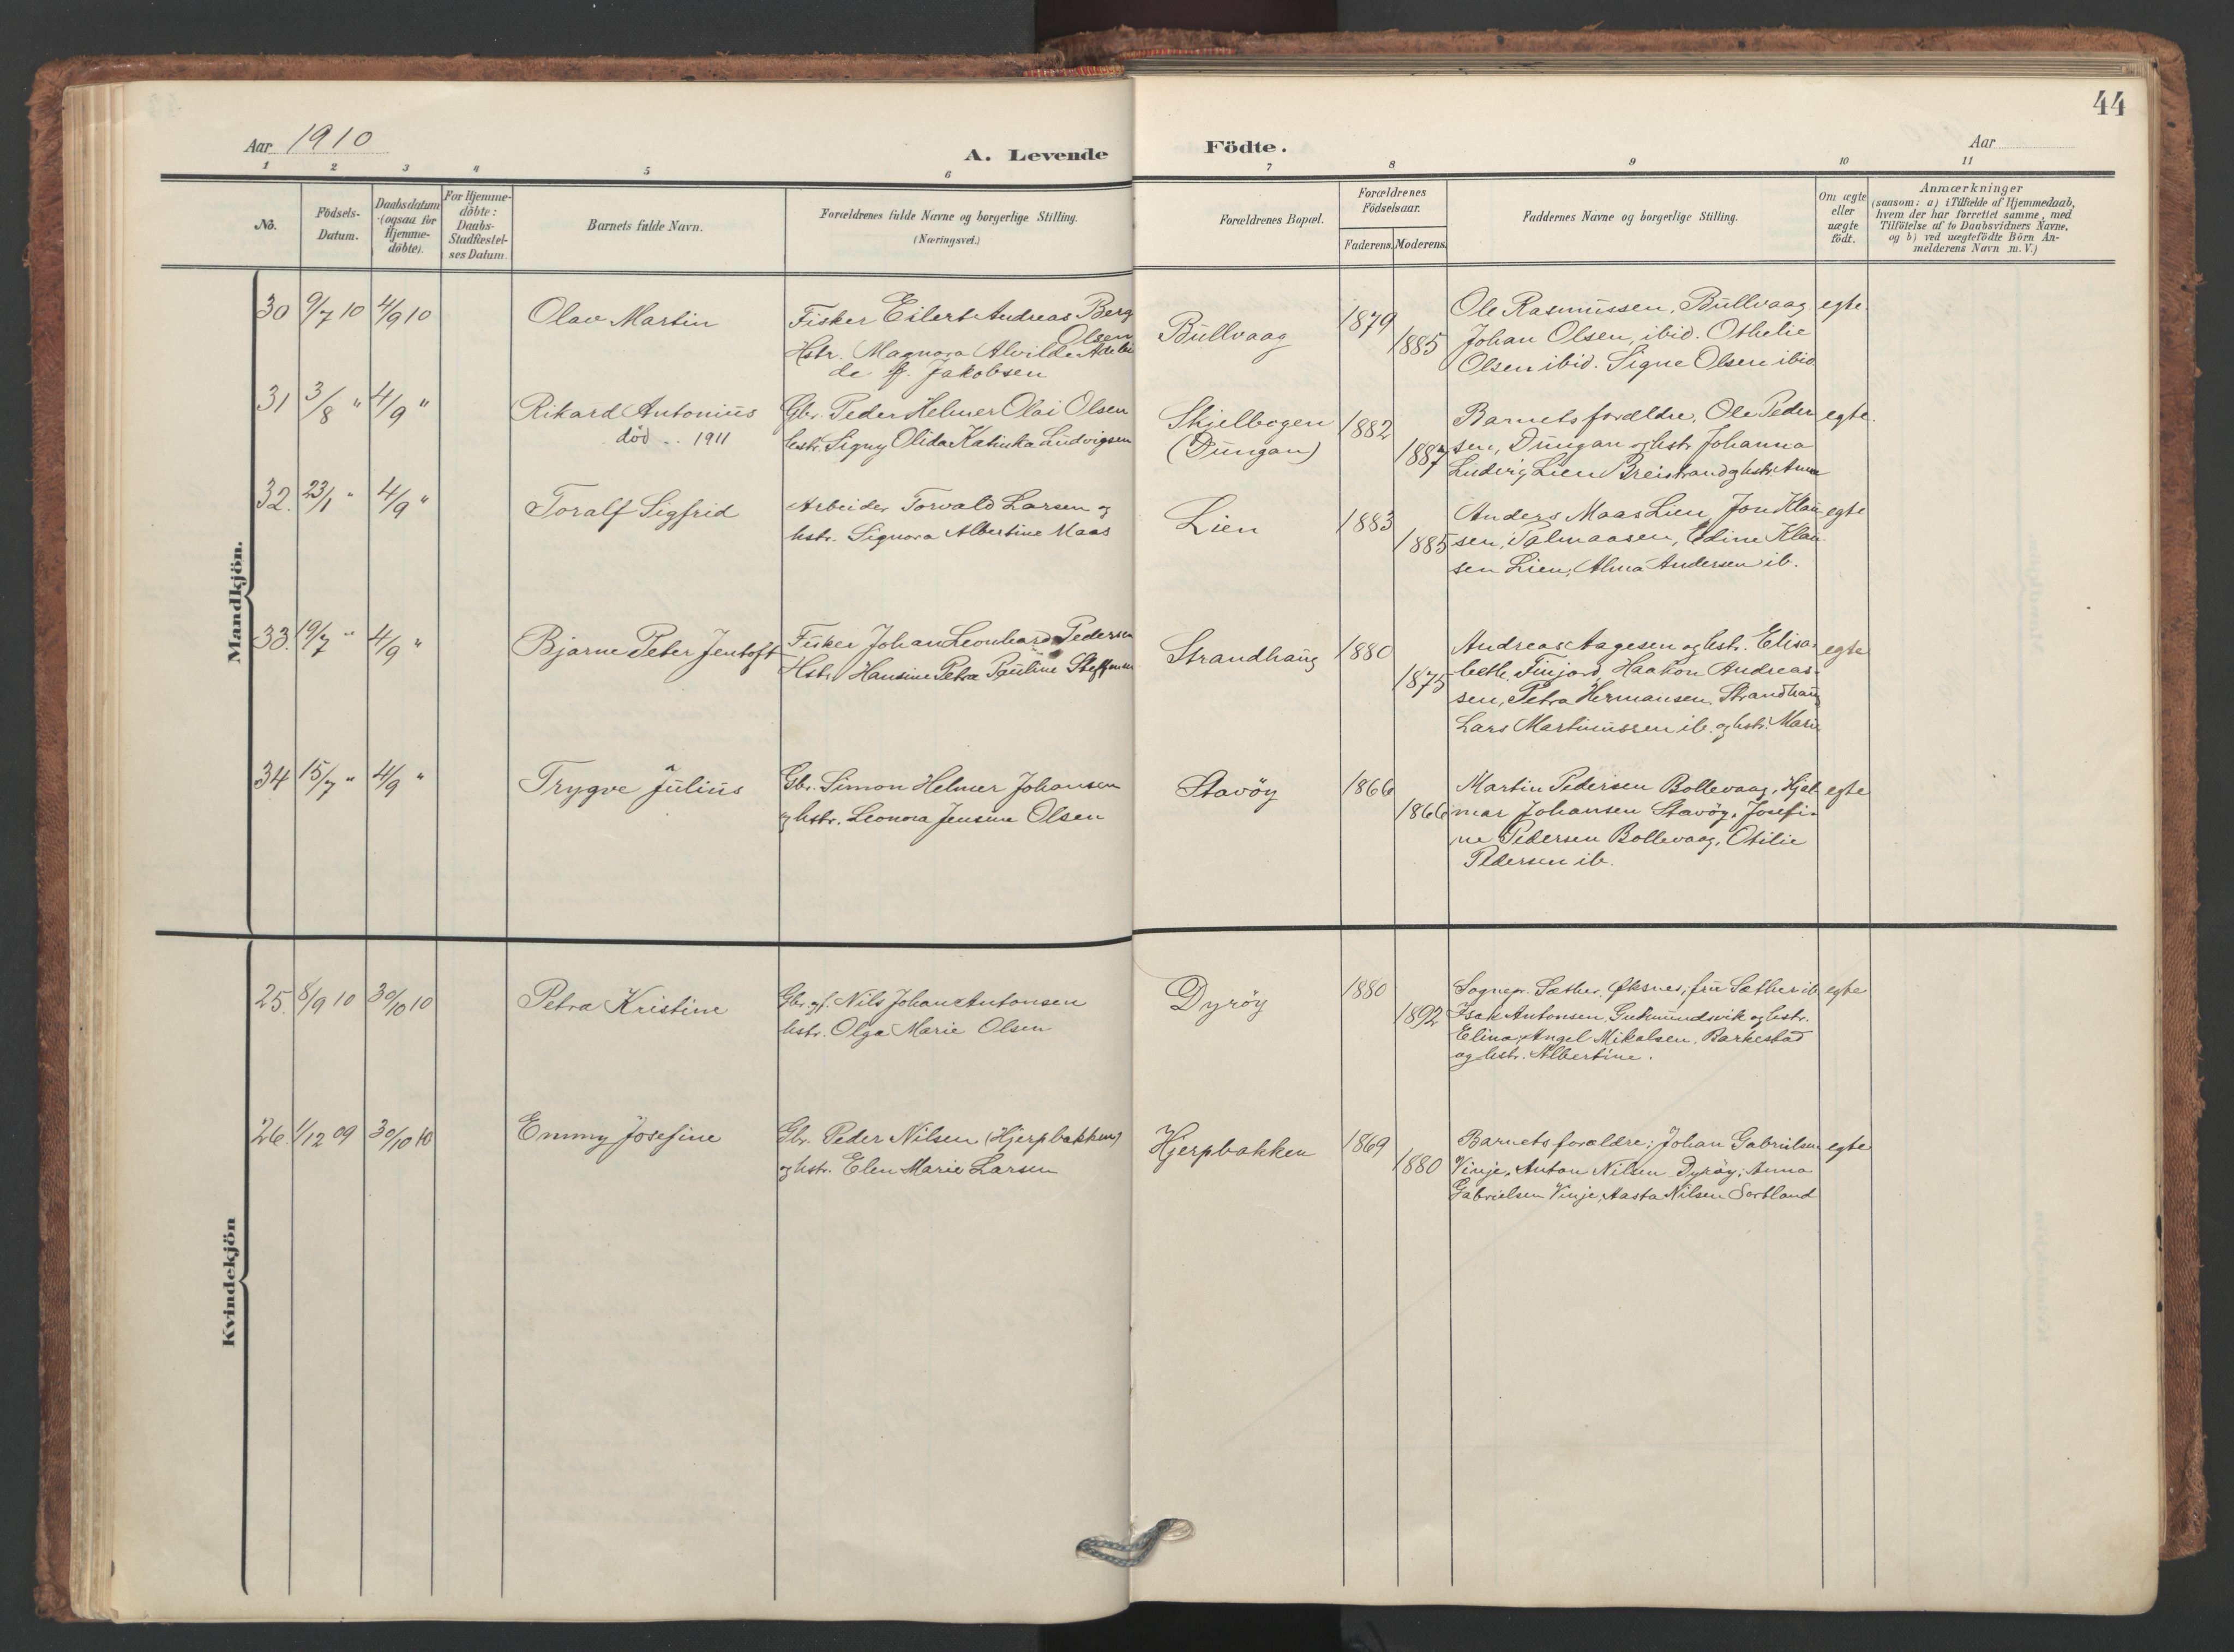 44
Aar 1910
A. Levende Födte.
Aar
1 2 3 4 5 6 7 8 9 10 11
No.
Födsels-
Datum.
Daabsdatum
(ogsaa for
Hjemme-
döbte).
For Hjemme-
döbte:
Daabs-
Stadfæstel-
ses Datum.
Barnets fulde Navn.
Forældrenes fulde Navne og borgerlige Stilling.
(Næringsvei.)
Forældrenes Bopæl.
Forældrenes
Födselsaar.
Faderens. Moderens.
Faddernes Navne og borgerlige Stilling.
Om ægte
eller
uægte
födt.
Anmærkninger
(saasom: a) i Tilfælde af Hjemmedaab,
hvem der har forrettet samme, med
Tilföielse af to Daabsvidners Navne,
og b) ved uægtefödte Börn An-
melderens Navn m. V.)
Mandkjön.
30 9/7 10 4/9 10
Olav Martin
Fisker Eilert Andreas Berg
Olsen
Hstr. Magnora Alvilde Adelei
de f. Jakobsen
Bullvaag
1879
1885
Ole Rasmussen, Bullvaag
Johan Olsen, ibid. Othelie
Olsen ibid. Signe Olsen ibid
egte.
31 3/8 " 4/9 "
Rikard Antonius
död .. 1911
Gbr. Peder Helmer Olai Olsen
hstr. Signy Olida Katinka Ludvigsen
Skjelbogen
(Dungan)
1882
1887
Barnets forældre, Ole Peder
sen, Dungan og hstr Johanna
Ludvig Lien Breistrand og hstr. Anna
egte.
32. 23/1 " 4/9 "
Toralf Sigfrid
Arbeider Torvald Larsen og
hstr. Signora Albertine Maas
Lien
1883
1885
Anders Maas Lien, Jon Klau
sen, Talmaasen, Edine Klau
sen Lien, Alma Andersen ib.
egte
33. 19/7 " 4/9 "
Bjarne Peter Jentoft
Fisker Johan Leonhard Pedersen
Hstr. Hansine Petra Pauline Steffensen
Strandhaug
1880
1875
Andreas Aagesen og hstr. Elisa-
beth. Finjord, Haakon Andreas-
sen, Petra Hermansen, Strandhaug
Lars Martinussen ib. og hstr. Marie
egte
34 15/7 " 4/9 "
Trygve Julius
Gbr. Simon Helmer Johansen
og hstr. Leonora Jensine Olsen
Stavöy
1866
1866
Martin Pedersen Bollevaag, Hjal-
mar Johansen Stavöy, Josefi-
ne Pedersen Bollevaag, Otilie
Pedersen ib.
egte
Kvindekjön
25. 8/9 10 30/10 10
Petra Kristine
Gbr. og f. Nils Johan Antonsen
hstr. Olga Marie Olsen
Dyröy
1880
1892
Sognepr. Sæther, Øksnes, fru Sæther ib
Isak Antonsen, Gudmundvik og hstr.
Elina, Angel Mikalsen, Barkestad
og hstr. Albertine.
egte
26. 1/12 09 30/10 10
Emmy Josefine
Gbr. Peder Nilsen (Hjerpbakken)
og hstr. Elen Marie Larsen
Hjerpbakken
1869
1880
Barnets forældre; Johan Gabrielsen
Vinje, Anton Nilsen Dyröy; Anna
Gabrielsen Vinje, Aasta Nilsen Sortland
egte